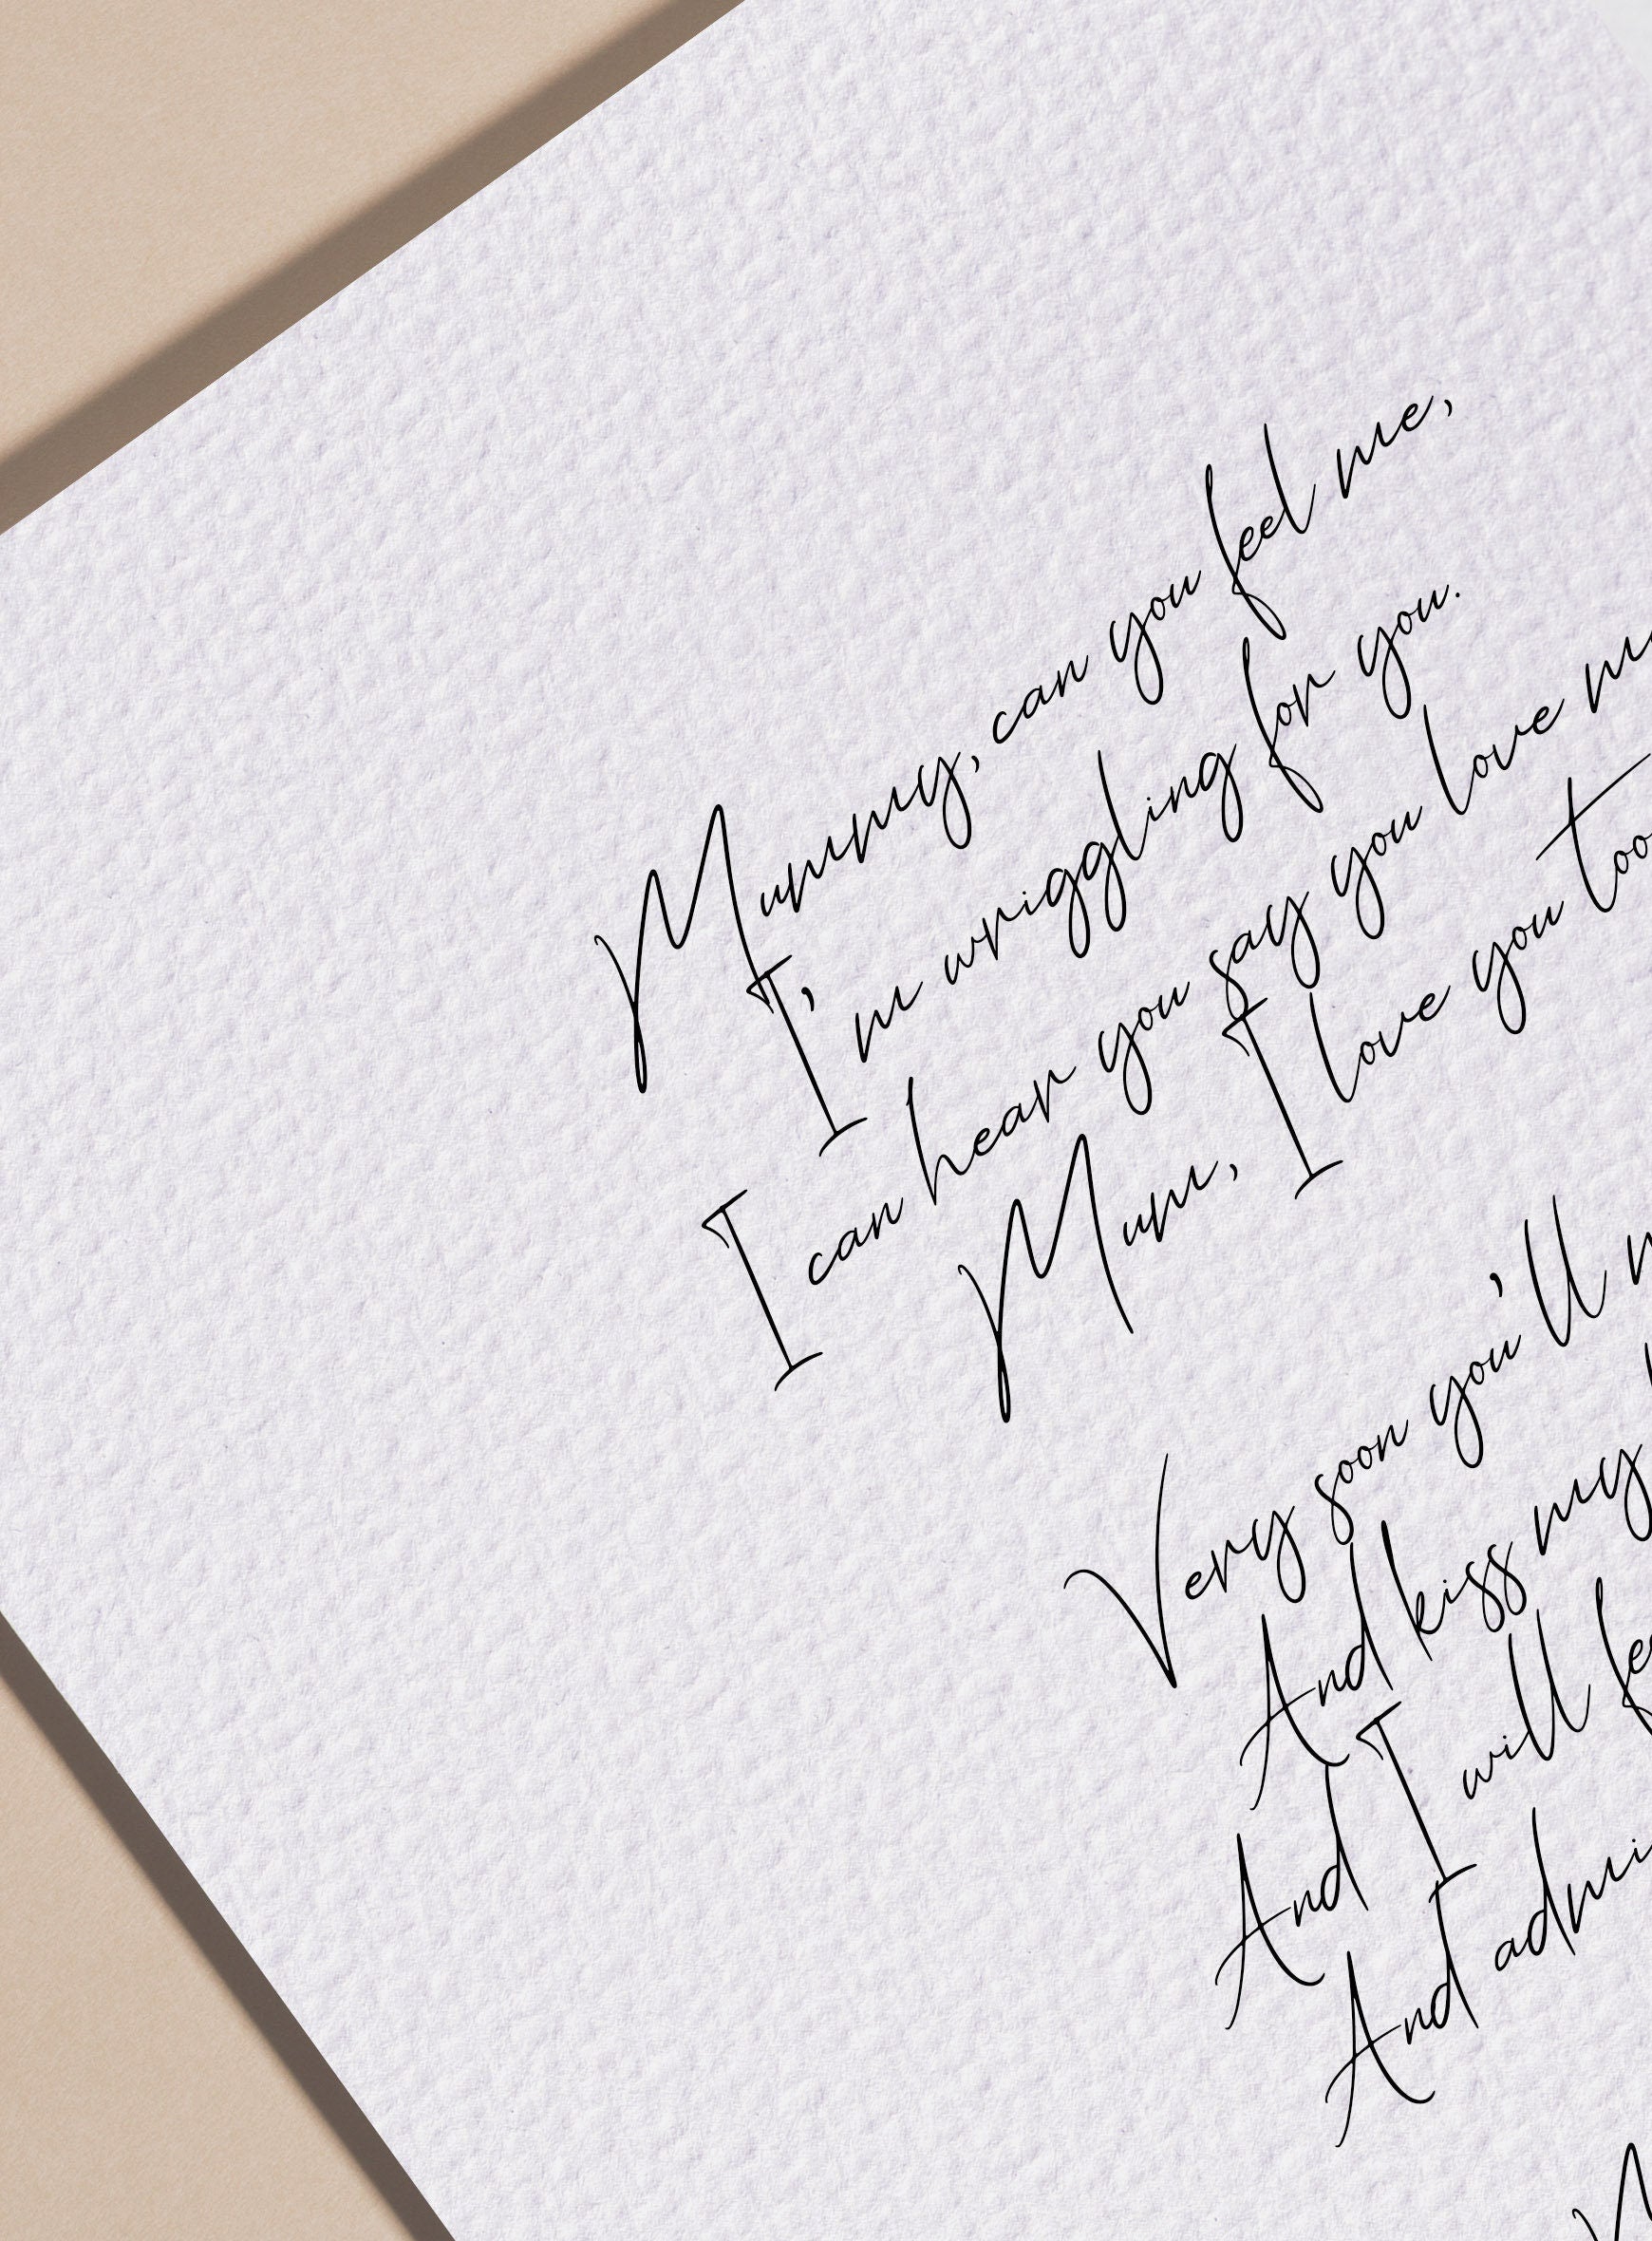 Mummy, can you feel me,
I'm wriggling for you.
I can hear you say you love
Mum, I love you too
Very soon you'll
And kiss my
And I will
And